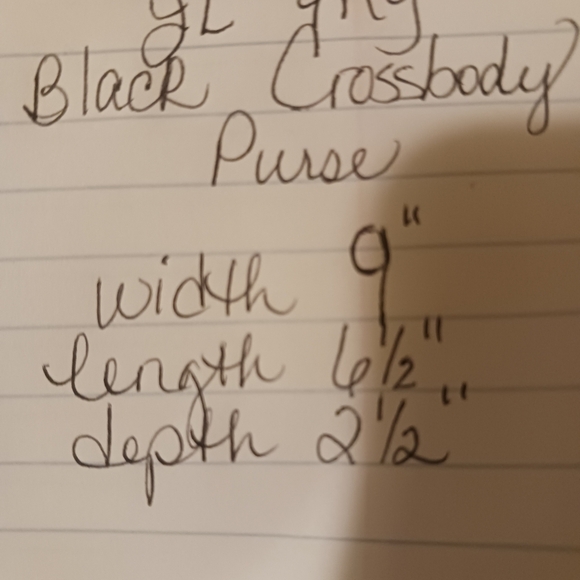 Black Crossbody
Purse
width 9"
length 6½"
depth 2½"